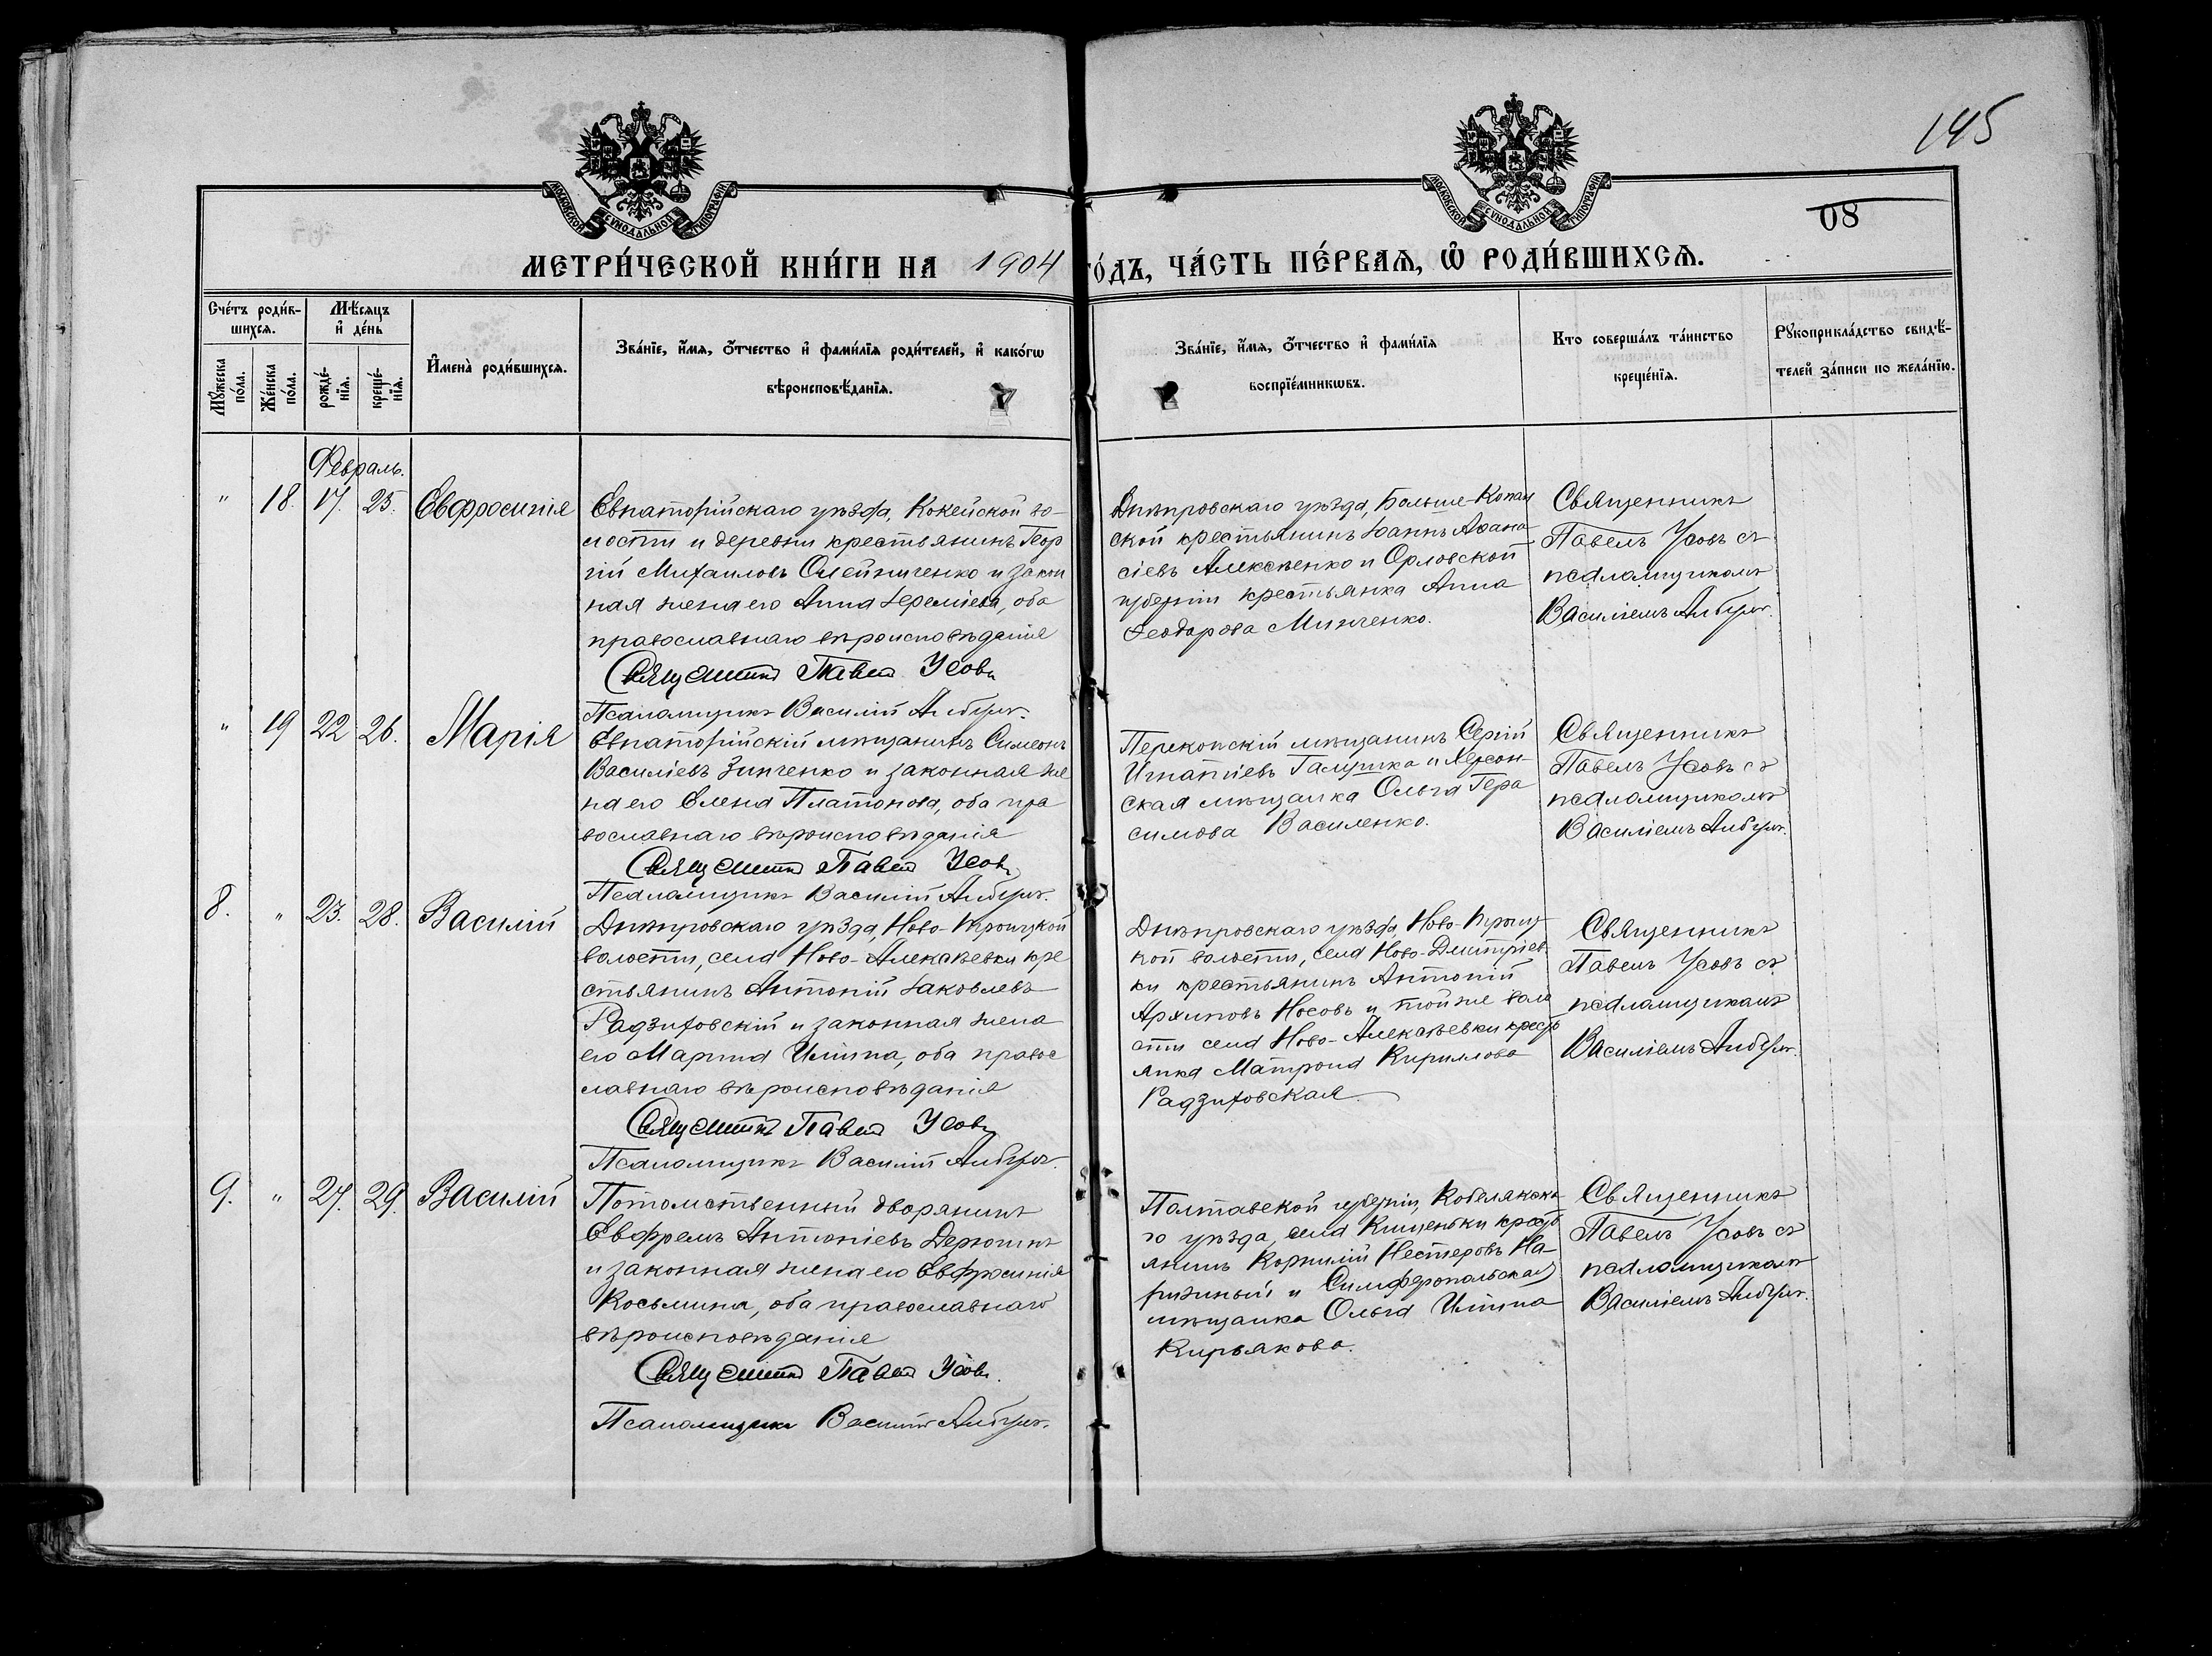 145
08
МОСКОВСКОЙ СѴНОДАЛЬНОЙ ТИПОГРАФІИ
МОСКОВСКОЙ СѴНОДАЛЬНОЙ ТИПОГРАФІИ
МЕТРИ́ЧЕСКОЙ КНИ́ГИ НА 1904 ГО́ДЪ, ЧА́СТЬ ПЕ́РВАѦ, Ѽ РОДИ́ВШИХСѦ.
Сче́тъ роди́в-
шихсѧ.
Мѣ́сяцъ
и҆ де́нь
Мꙋ́жеска
по́ла.
Же́нска
по́ла.
рожде́-
нїѧ.
креще́-
нїѧ.
И҆мена̀ роди́вшихсѧ.
Зва́нїе, и҆́мѧ, ѻ҆́тчество и҆ фами́лїѧ роди́телей, и҆ како́гѡ
вѣроисповѣ́данїѧ.
Зва́нїе, и҆́мѧ, ѻ҆́тчество и҆ фами́лїѧ
воспрїе́мникѡвъ.
Кто соверша́лъ та́инство
креще́нїѧ.
Рꙋкоприкла́дство свидѣ́-
телей за́писи по жела́нїю.
Февраль.
" 18. 17. 25. Евфросинія
Евпаторійскаго уѣзда, Кокейской во-
лости и деревни крестьянинъ Геор
гій Михаиловъ Олейниченко и закон
ная жена его Анна Іереміева, оба
православнаго вѣроисповѣданія
Священникъ Павелъ Усовъ
Псаломщикъ Василій
Днѣпровскаго уѣзда, Больше-Копан
ской крестьянинъ Іоаннъ Аѳана
сіевъ Алексѣенко и Орловской
губерніи крестьянка Анна
Ѳеодорова Минченко.
Священникъ
Павелъ Усовъ съ
псаломщикомъ
Василіемъ
" 19 22 26. Марія
Евпаторійскій мѣщанинъ Симеонъ
Василіевъ Зинченко и законная же
на его Елена Платонова, оба пра
вославнаго вѣроисповѣданія
Священникъ Павелъ Усовъ
Псаломщикъ Василій
Перекопскій мѣщанинъ Сергій
Игнатіевъ Галушка и Херсон-
ская мѣщанка Ольга Гера
симова Василенко.
Священникъ
Павелъ Усовъ съ
псаломщикомъ
Василіемъ
8. " 23. 28. Василій
Днѣпровскаго уѣзда, Ново-Троицкой
волости, села Ново-Алексѣевки кре
стьянинъ Антоній Іаковлевъ
Радзиховскій и законная жена
его Марѳа Иліина, оба правос
лавнаго вѣроисповѣданія
Священникъ Павелъ Усовъ
Псаломщикъ Василій
Днѣпровскаго уѣзда, Ново-Троиц
кой волости, села Ново-Дмитріев
ки крестьянинъ Антоній
Архиповъ Носовъ и той же воло
сти села Ново-Алексѣевки кресть
янка Матрона Кириллова
Радзиховская
Священникъ
Павелъ Усовъ съ
псаломщикомъ
Василіемъ
9. " 27. 29. Василій
Потомственный дворянинъ
Евфремъ Антоніевъ Дерюгинъ
и законная жена его Евфросинія
Косьмина, оба православнаго
вѣроисповѣданія
Священникъ Павелъ Усовъ.
Псаломщикъ Василій
Полтавской губерніи, Кобелякска
го уѣзда, села Кишеньки кресть
янинъ Корнилій Нестеровъ На-
рижный и Симферопольская
мѣщанка Ольга Иліина
Кирьякова.
Священникъ
Павелъ Усовъ съ
псаломщикомъ
Василіемъ